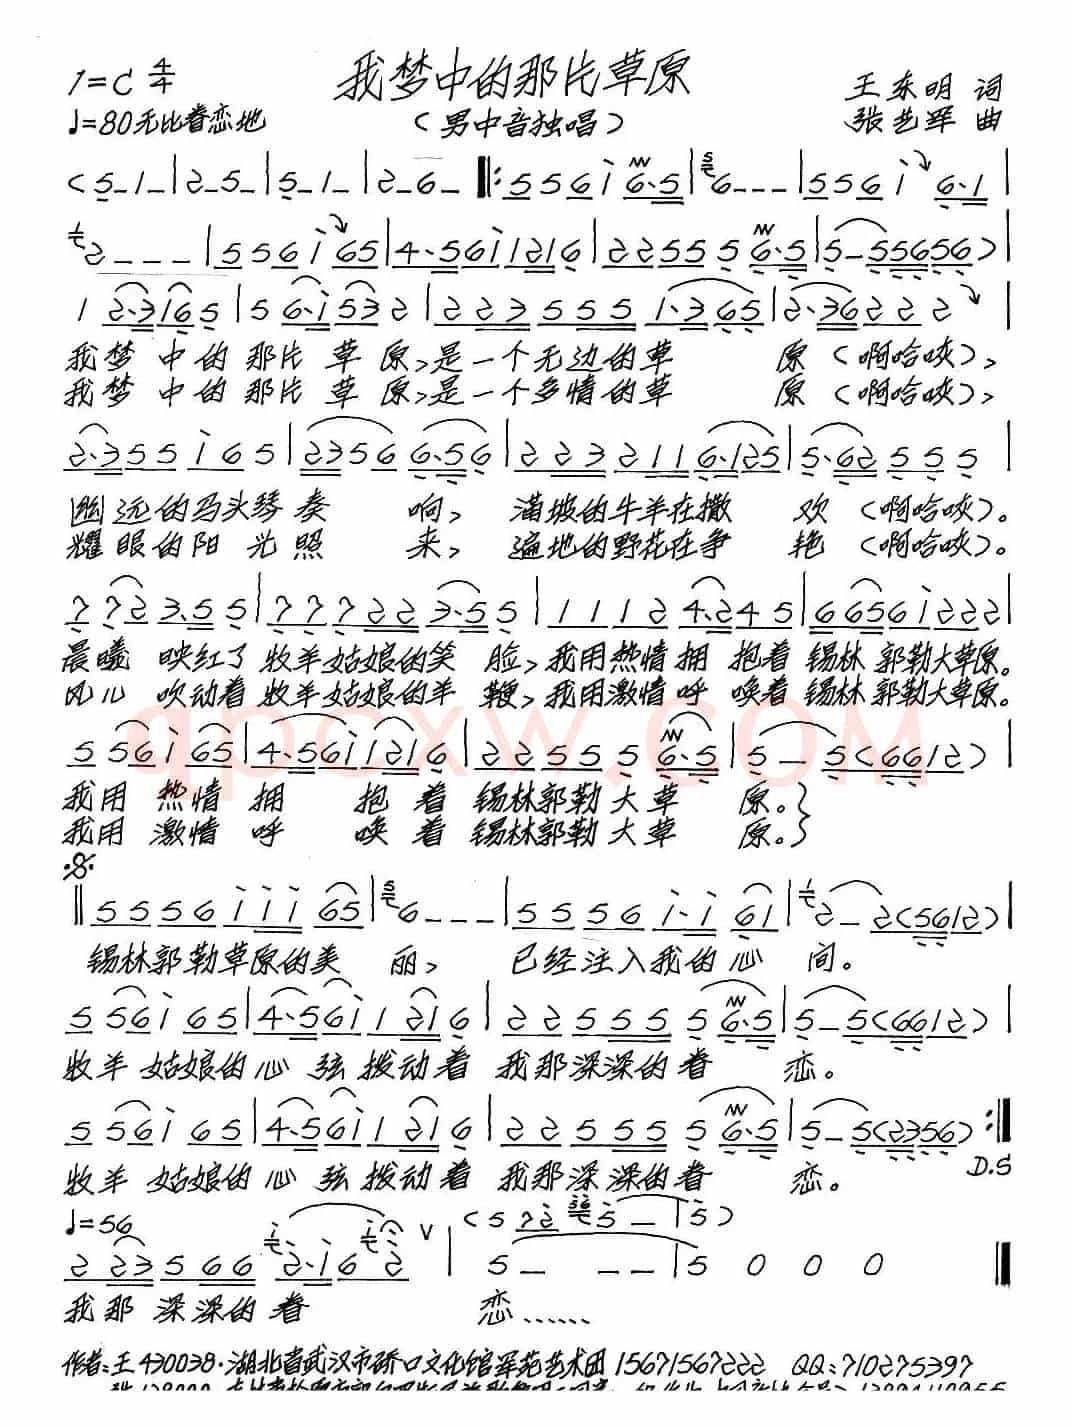 1=C 4/4 我梦中的那片草原 王东明 词
♩=80无比眷恋地 （男中音独唱） 张艺军 曲
(5-1-|2-5-|5-1-|2-6-‖:556i6·5|6---|556i6·1|
2---|556i65|4·56i1216|22555 6·5|5-55656)|
1 2·3165|5 6·i532|223555 1·365|2·36222|
我梦 中的 那片 草 原,是一个无边的草 原（啊哈咴），
我梦 中的 那片 草 原,是一个多情的草 原（啊哈咴），
2·355 i65|2356 6·56|2232116·125|5·62555|
幽远的马头琴奏 响， 满坡的牛羊在撒 欢（啊哈咴）。
耀眼的阳光照 来， 遍地的野花在争 艳（啊哈咴）。
7 72 3·5 5|777223·55|1112 4·245|6656i222|
晨曦 映红了 牧羊姑娘的笑 脸，我用热情拥 抱着 锡林郭勒大草原。
风儿 吹动着 牧羊姑娘的羊 鞭，我用激情呼 唤着 锡林郭勒大草原。
5 56i65|4·56i1216|22555 6·5|5-5(6612)
qpcxw.com
我用 热情 拥 抱 着 锡林郭勒大草 原。}
我用 激情 呼 唤 着 锡林郭勒大草 原。}
‖5556iii65|6---|5556i·i61|2-2(5612)|
锡林郭勒草原的美 丽， 已经注入我的心 间。
5 56i65|4·56i1216|22555 5 6·5|5-5(6612)|
牧羊 姑娘的心 弦拨动着 我那深深的眷 恋。
5 56i65|4·56i1216|22555 5 6·5|5-5(2356):‖
D.S
牧羊 姑娘的心 弦拨动着 我那深深的眷 恋。
♩=56 (5 72 5-|5)
2 23566 2·i62 V|5- --|5 0 0 0‖
我那 深深的眷 恋……
作者:王430038·湖北省武汉市硚口文化馆军苑艺术团15671567222 QQ:710275397